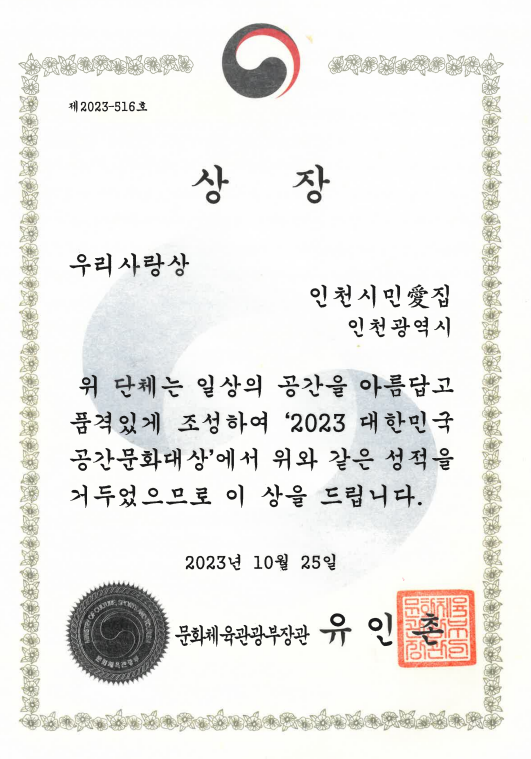 제2023-516호
상 장
우리사랑상
인천시민愛집
인천광역시
위 단체는 일상의 공간을 아름답고
품격있게 조성하여 ‘2023 대한민국
공간문화대상’에서 위와 같은 성적을
거두었으므로 이 상을 드립니다.
2023년 10월 25일
문화체육관광부장관 유 인 촌
문화체육관광부